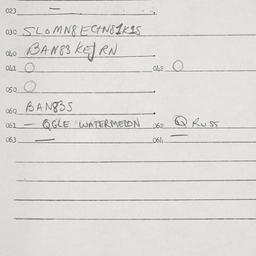 023 —
030 SLOMN8 ECTN81K1S
040 BAN83 KEJRN
041 O 042 O
050 O
060 BAN83S
061 — QGLE WATERMELON 062 Q RUSS
063 — 064 —